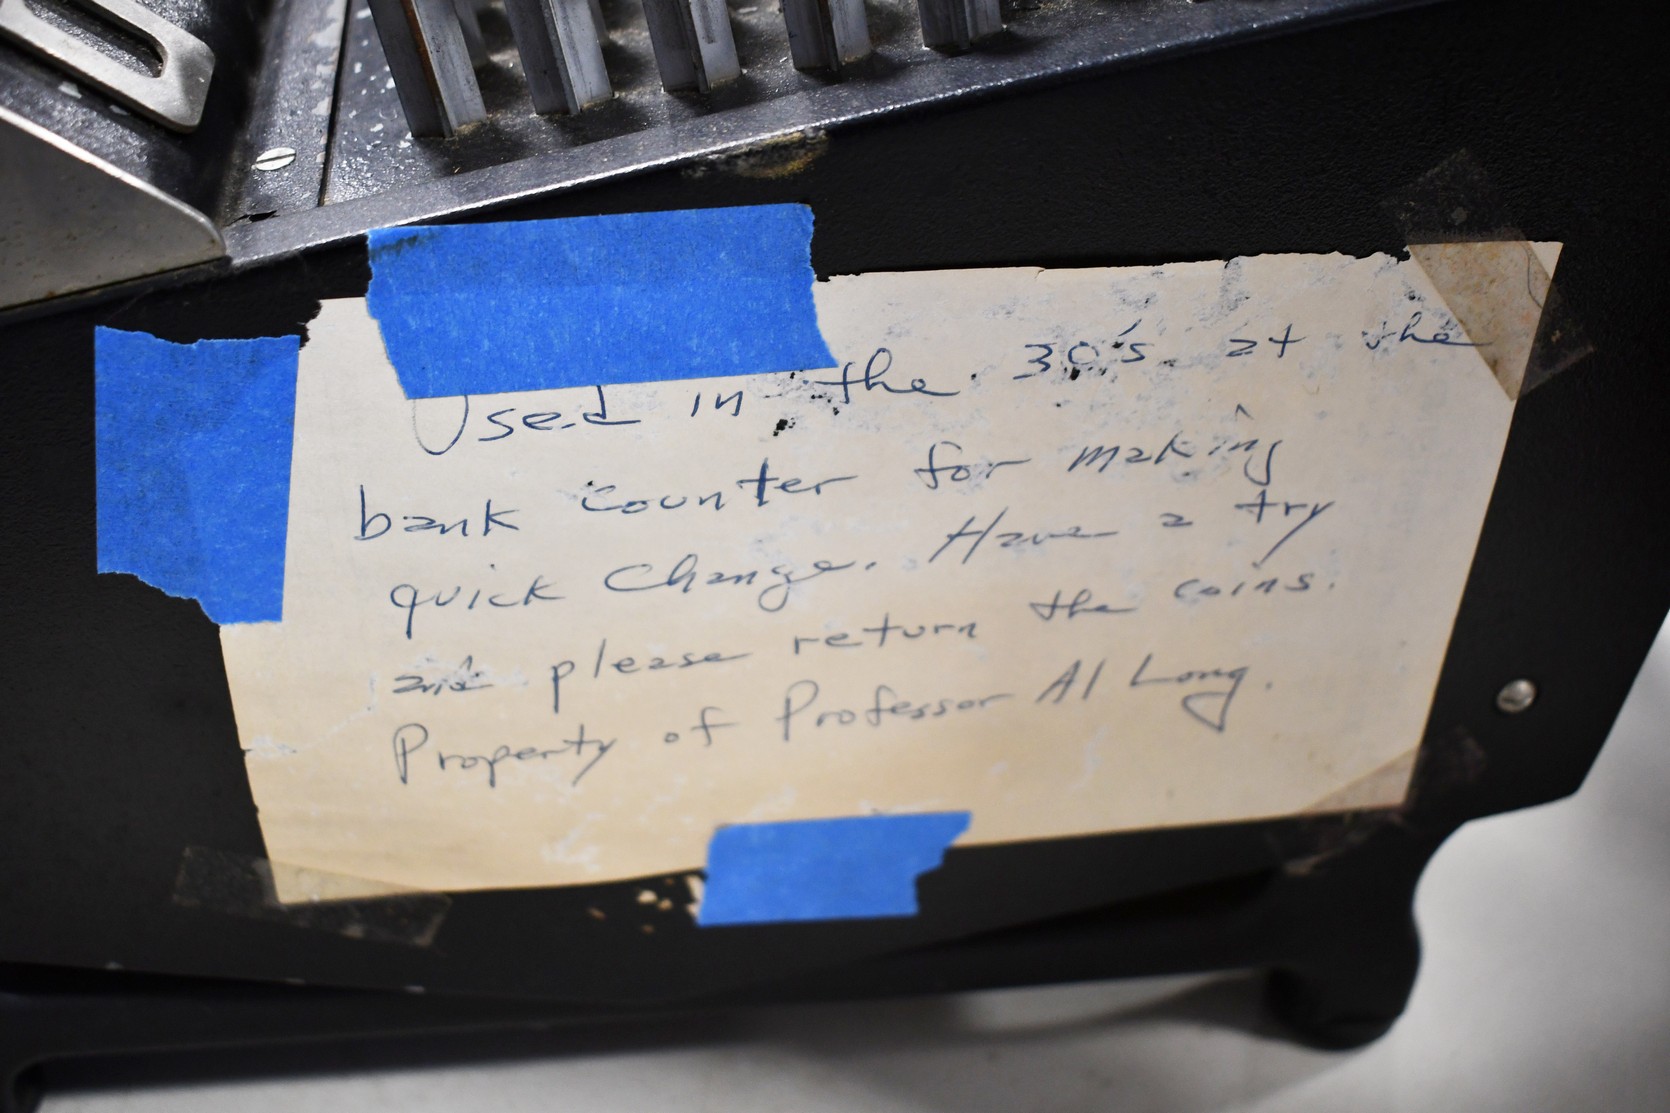 Used in the 30's at the
bank counter for making
quick change. Have a try
and please return the coins.
Property of Professor Al Long.